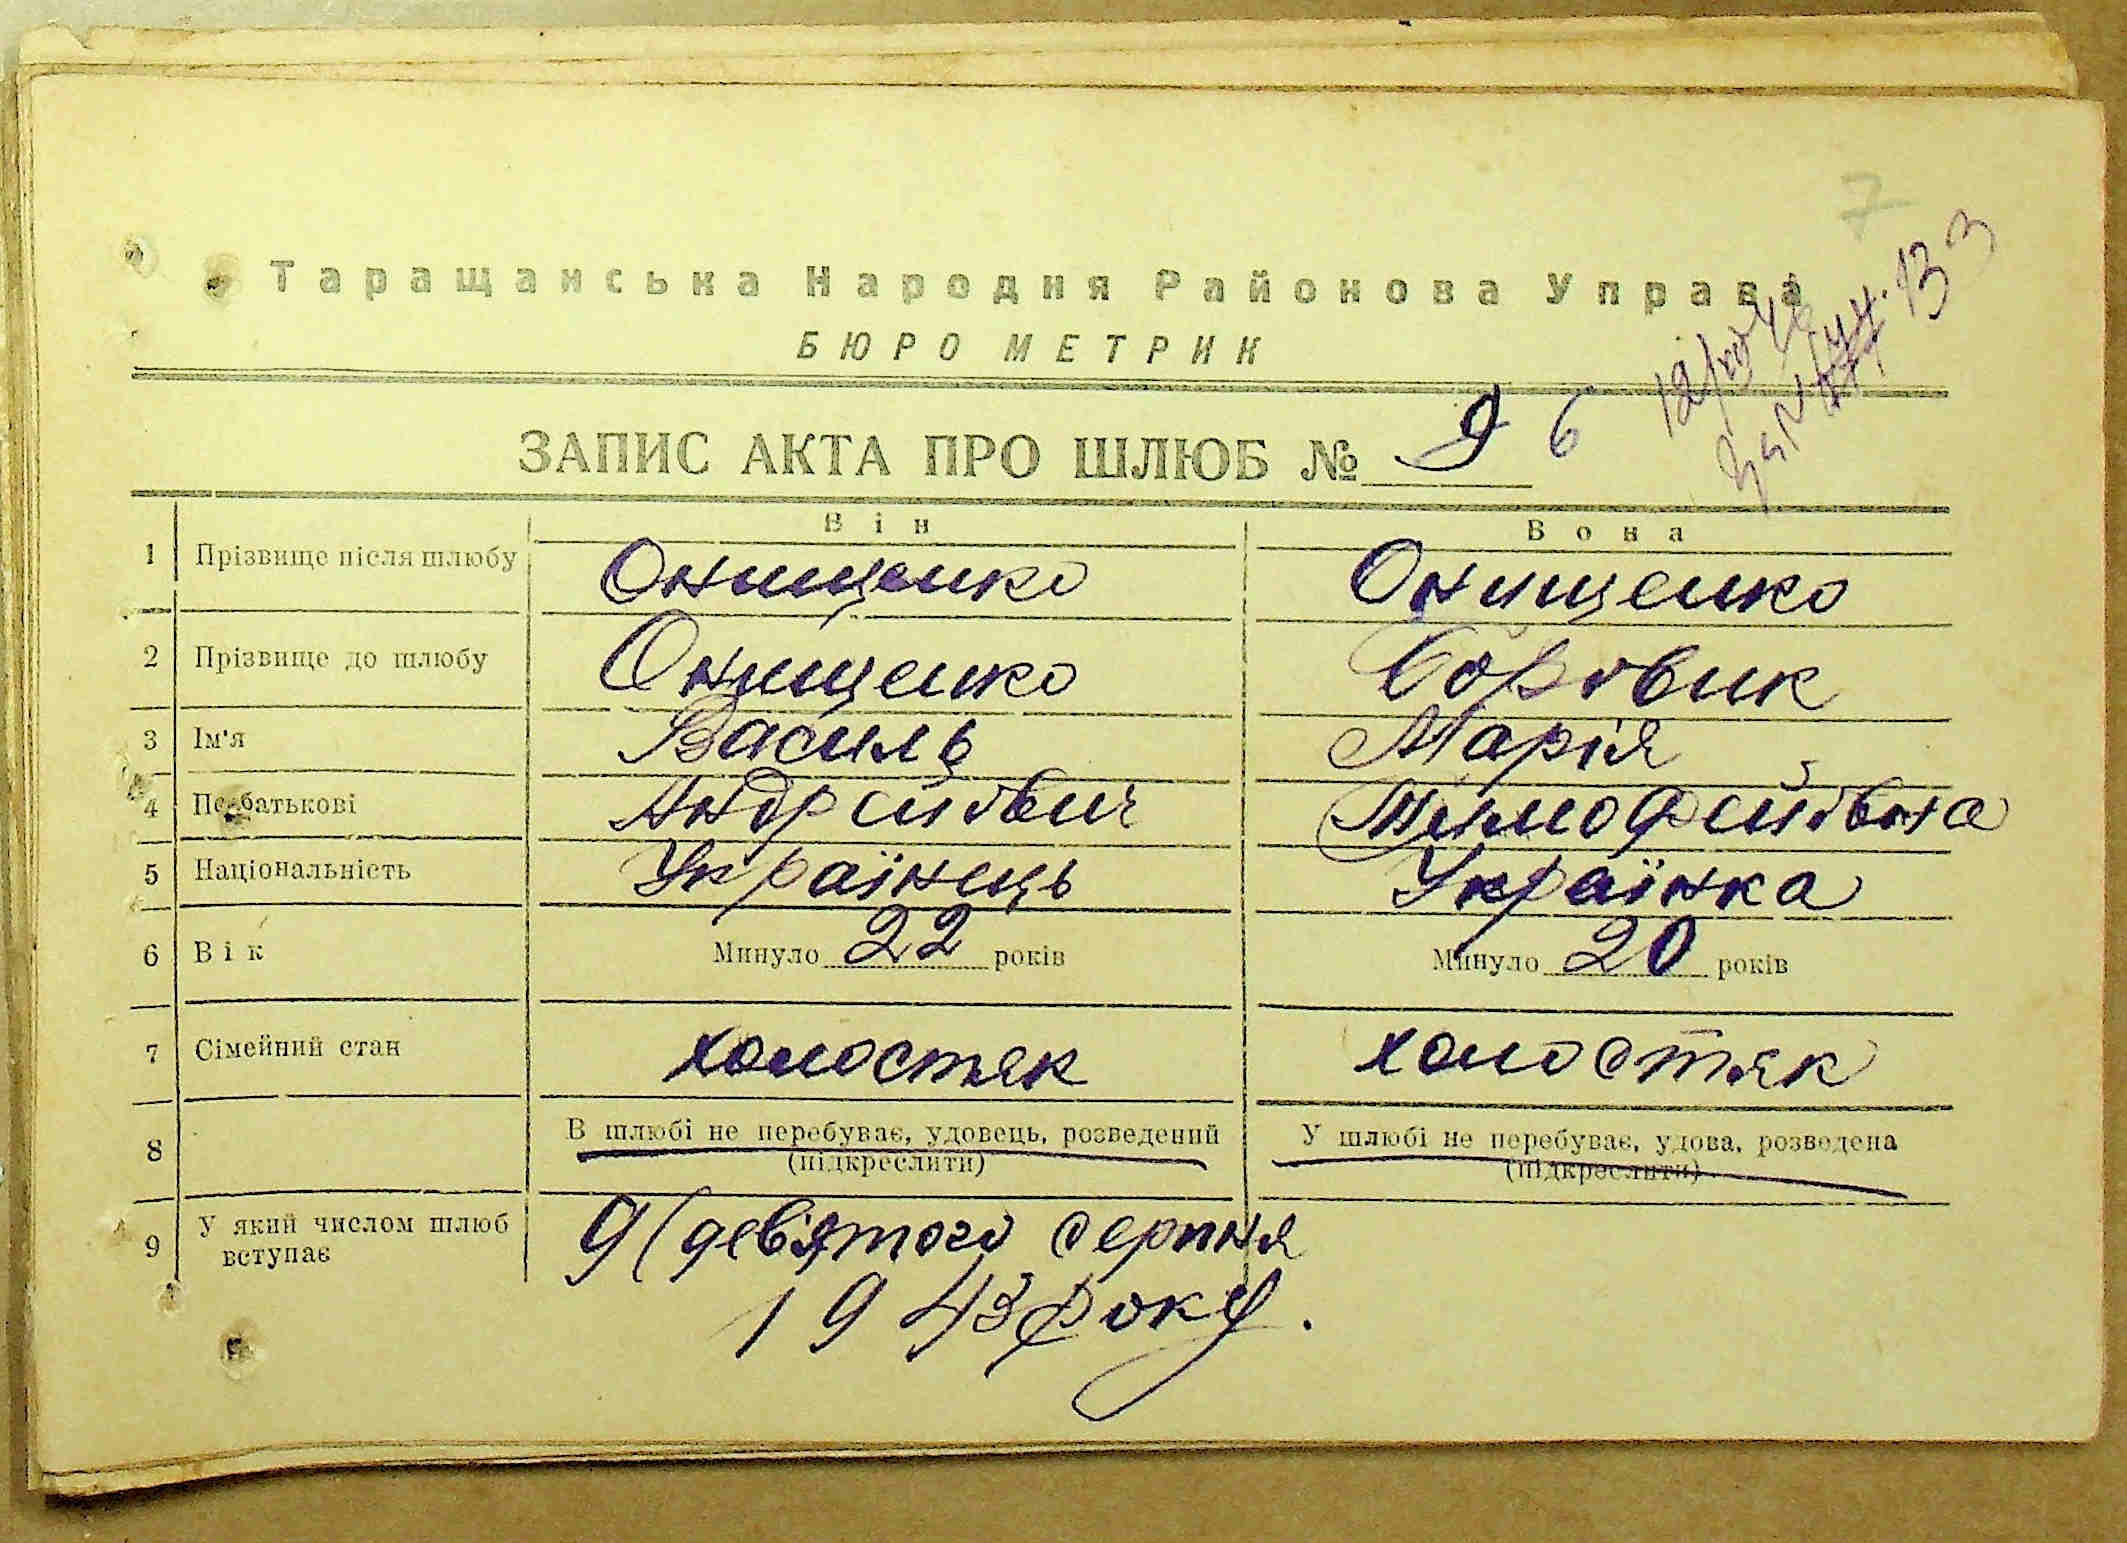 7
Таращанська Народня Районова Управа
БЮРО МЕТРИК
133
ЗАПИС АКТА ПРО ШЛЮБ № 9 6
Він Вона
1 Прізвище після шлюбу Онищенко Онищенко
2 Прізвище до шлюбу Онищенко Боровик
3 Ім'я Василь Марія
4 По батькові Андрейович Тимофейовна
5 Національність Українець Українка
6 Вік Минуло 22 років Минуло 20 років
7 Сімейний стан холостяк холостяк
8 В шлюбі не перебуває, удовець, розведений У шлюбі не перебуває, удова, розведена
(підкреслити) (підкреслити)
9 У який числом шлюб вступає 9 (девятого серпня
1943 року.